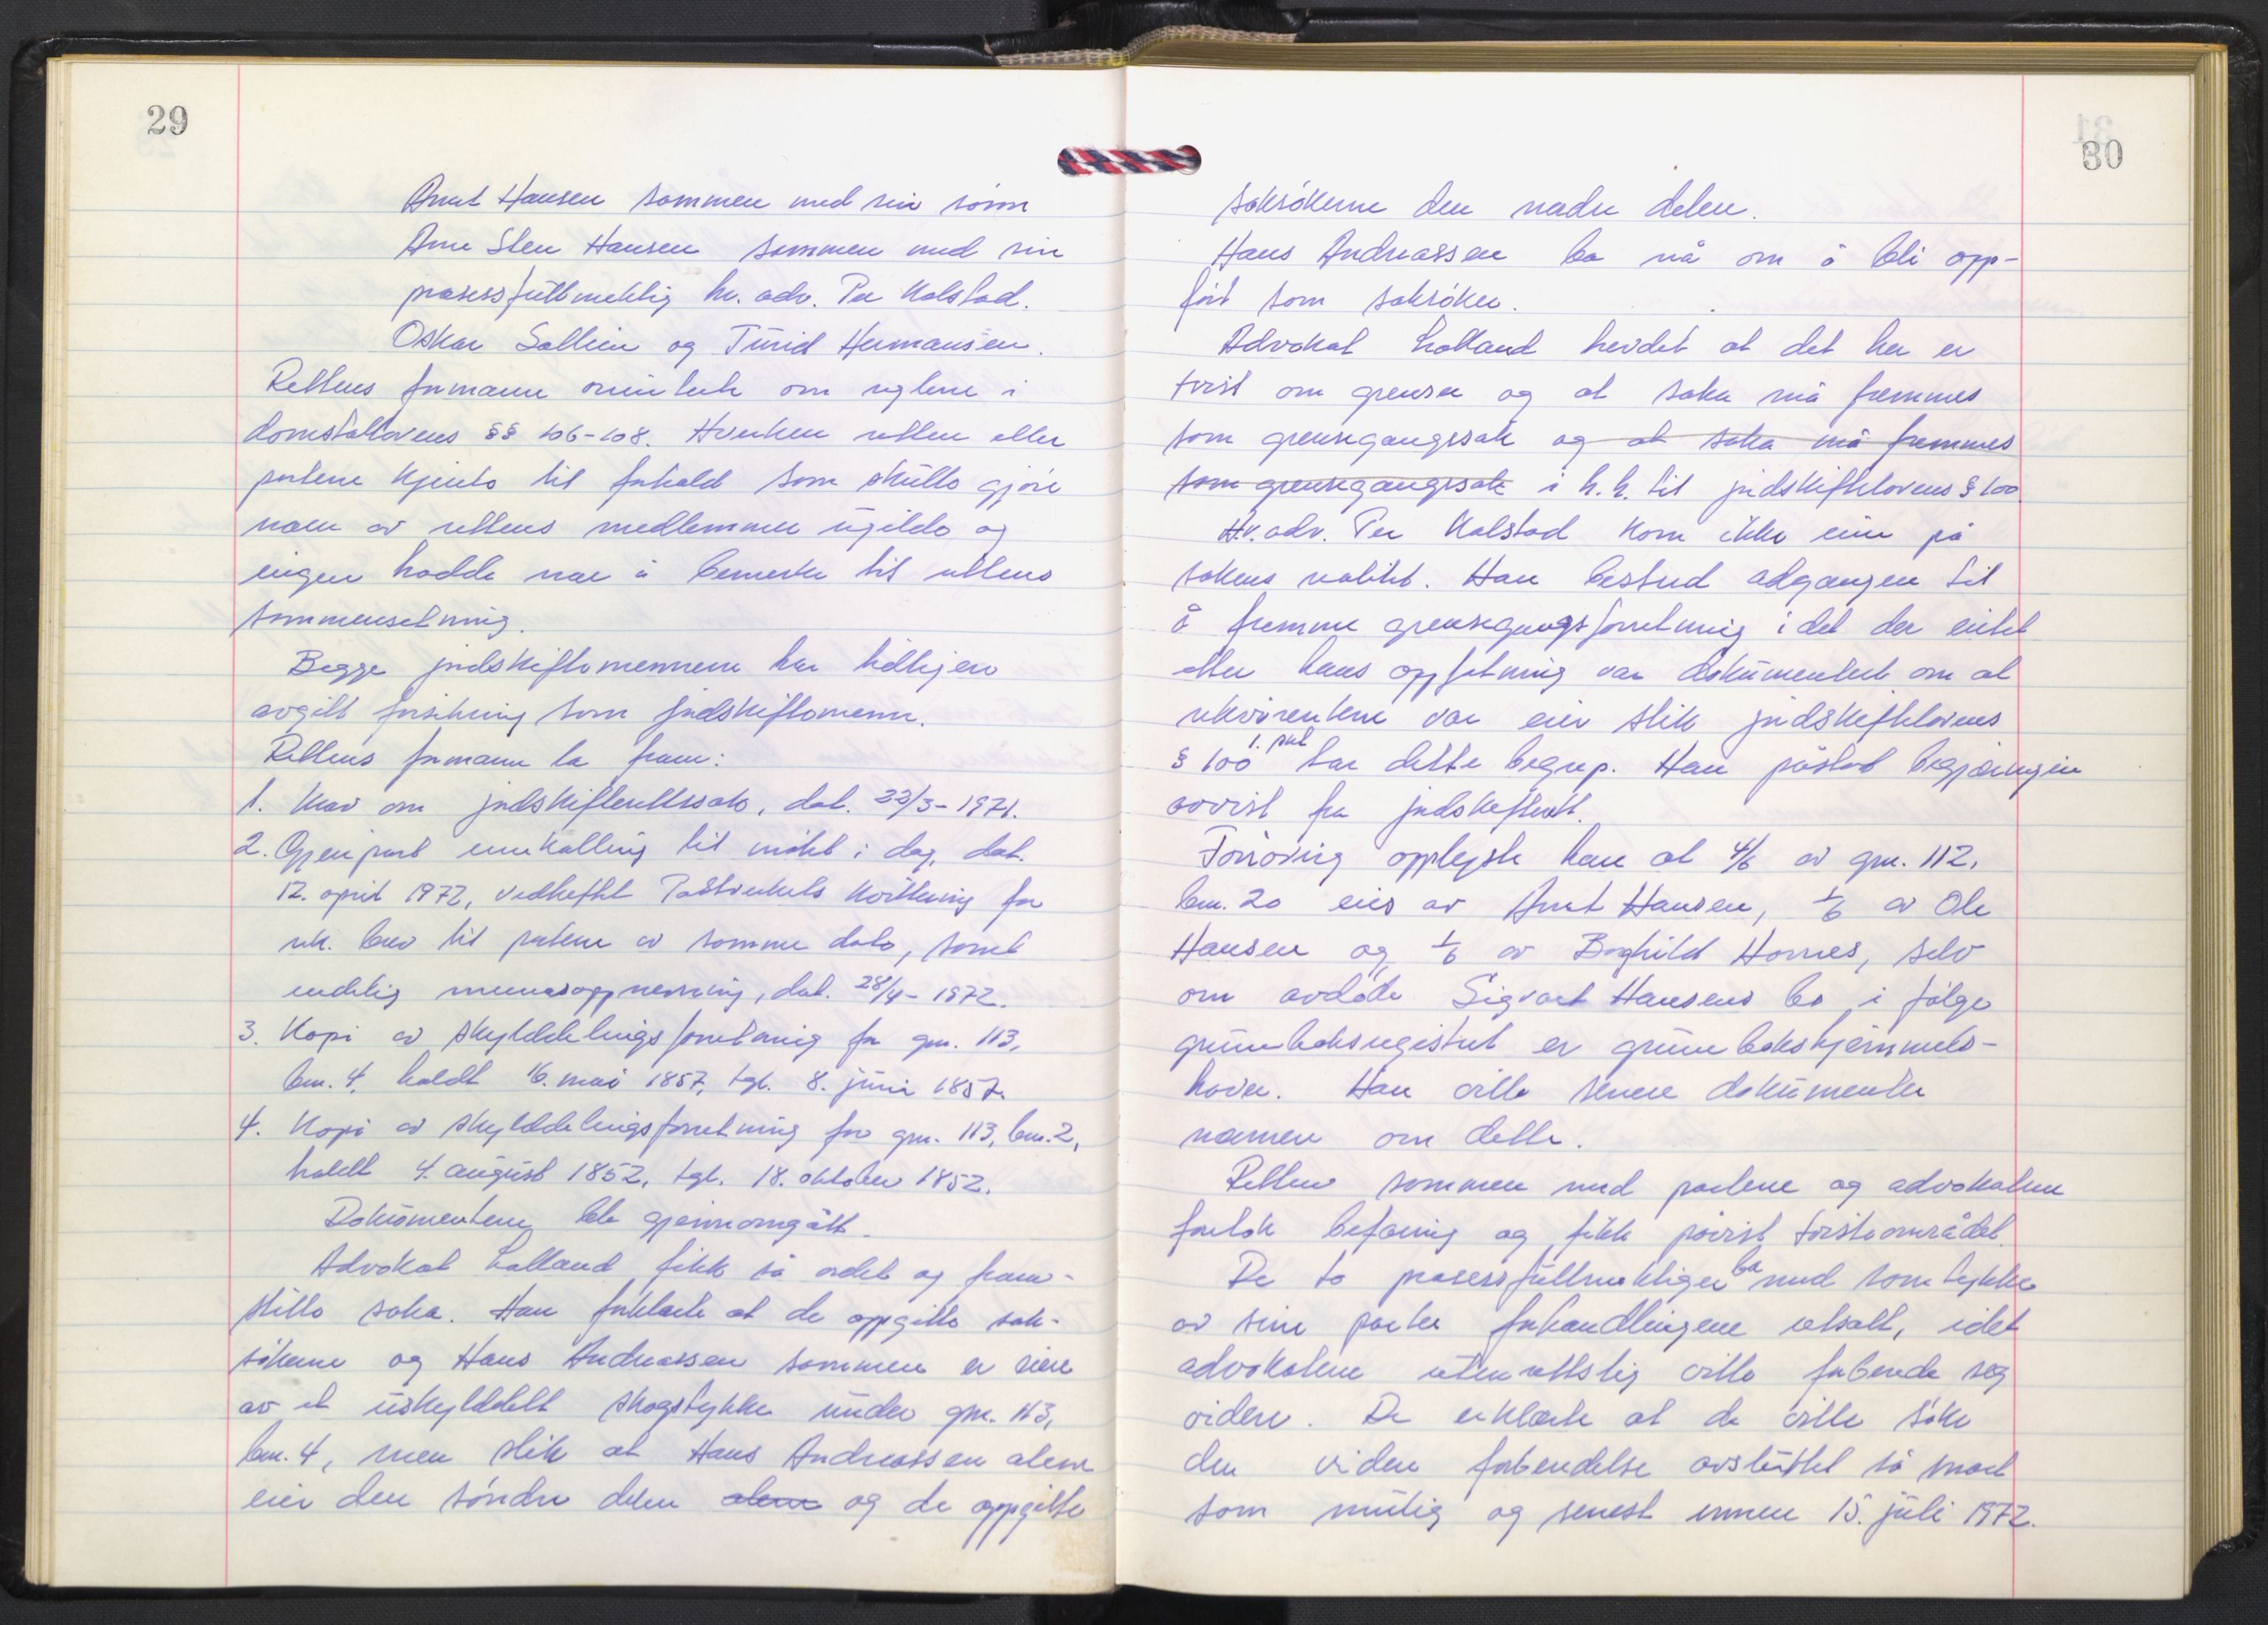 29
Arnt Hansen sammen med sin sønn
Arne Sten Hansen sammen med sin
prosessfullmektig hr. adv. Per Kolstad.
Oskar Sollien og Turid Hermansen.
Rettens formann orienterte om reglene i
domstollovens §§ 106-108. Hverken retten eller
partene kjente til forhold som skulle gjøre
noen av rettens medlemmer ugilde og
ingen hadde noe å bemerke til rettens
sammensetning.
Begge jordskiftemennene har tidligere
avgitt forsikring som jordskiftemenn.
Rettens formann la fram:
1. Krav om jordskifterettssak, dat. 22/3-1971.
2. Gjenpart innkalling til møtet i dag, dat.
12. april 1972, vedheftet Postverkets kvittering for
rek. brev til partene av samme dato, samt
endelig mannsoppnevning, dat. 28/4-1972.
3. Kopi av skylddelingsforretning for gnr. 113,
bnr. 4, holdt 16. mai 1857, tgl. 8. juni 1857.
4. Kopi av skylddelingsforretning for gnr. 113, bnr. 2,
holdt 4. august 1852, tgl. 18. oktober 1852.
Dokumentene ble gjennomgått.
Advokat Lolland fikk så ordet og frem-
stilte saka. Han forklarte at de oppgitte sak-
søkerne og Hans Andreassen sammen er eiere
av et uskylddelt skogstykke under gnr. 113,
bnr. 4, men slik at Hans Andreassen alene
eier den søndre delen alene og de oppgitte
30
saksøkerne den nordre delen.
Hans Andreassen ba nå om å bli opp-
ført som saksøker.
Advokat Lolland hevdet at det her er
tvist om grenser og at saka må fremmes
som grensegangssak og at saka må fremmes
som grensegangssak i h.h. til jordskiftelovens § 100.
Hr. adv. Per Kolstad kom ikke inn på
sakens realitet. Han bestred adgangen til
å fremme grensegangsforretning idet der intet
etter hans oppfatning var dokumentert om at
rekvirentene var eier slik jordskiftelovens
§ 100 1. pkt bar dette begrep. Han påstod begjæringen
avvist fra jordskifterett.
Forøvrig opplyste han at 4/6 av gnr. 112,
bnr. 20 eies av Arnt Hansen, 1/6 av Ole
Hansen og 1/6 av Borghild Hornes, selv
om avdøde Sigvart Hansens bo i følge
grunnboksregistret er grunnbokshjemmels-
haver. Han ville senere dokumentere
nærmere om dette.
Retten sammen med partene og advokatene
foretok befaring og fikk påvist tvisteområdet.
De to prosessfullmektiger ba med samtykke
av sine parter forhandlingene utsatt, idet
advokatene utenrettslig ville forberede seg
videre. De erklærte at de ville søke
den videre forberedelse avsluttet så snart
som mulig og senest innen 15. juli 1972.